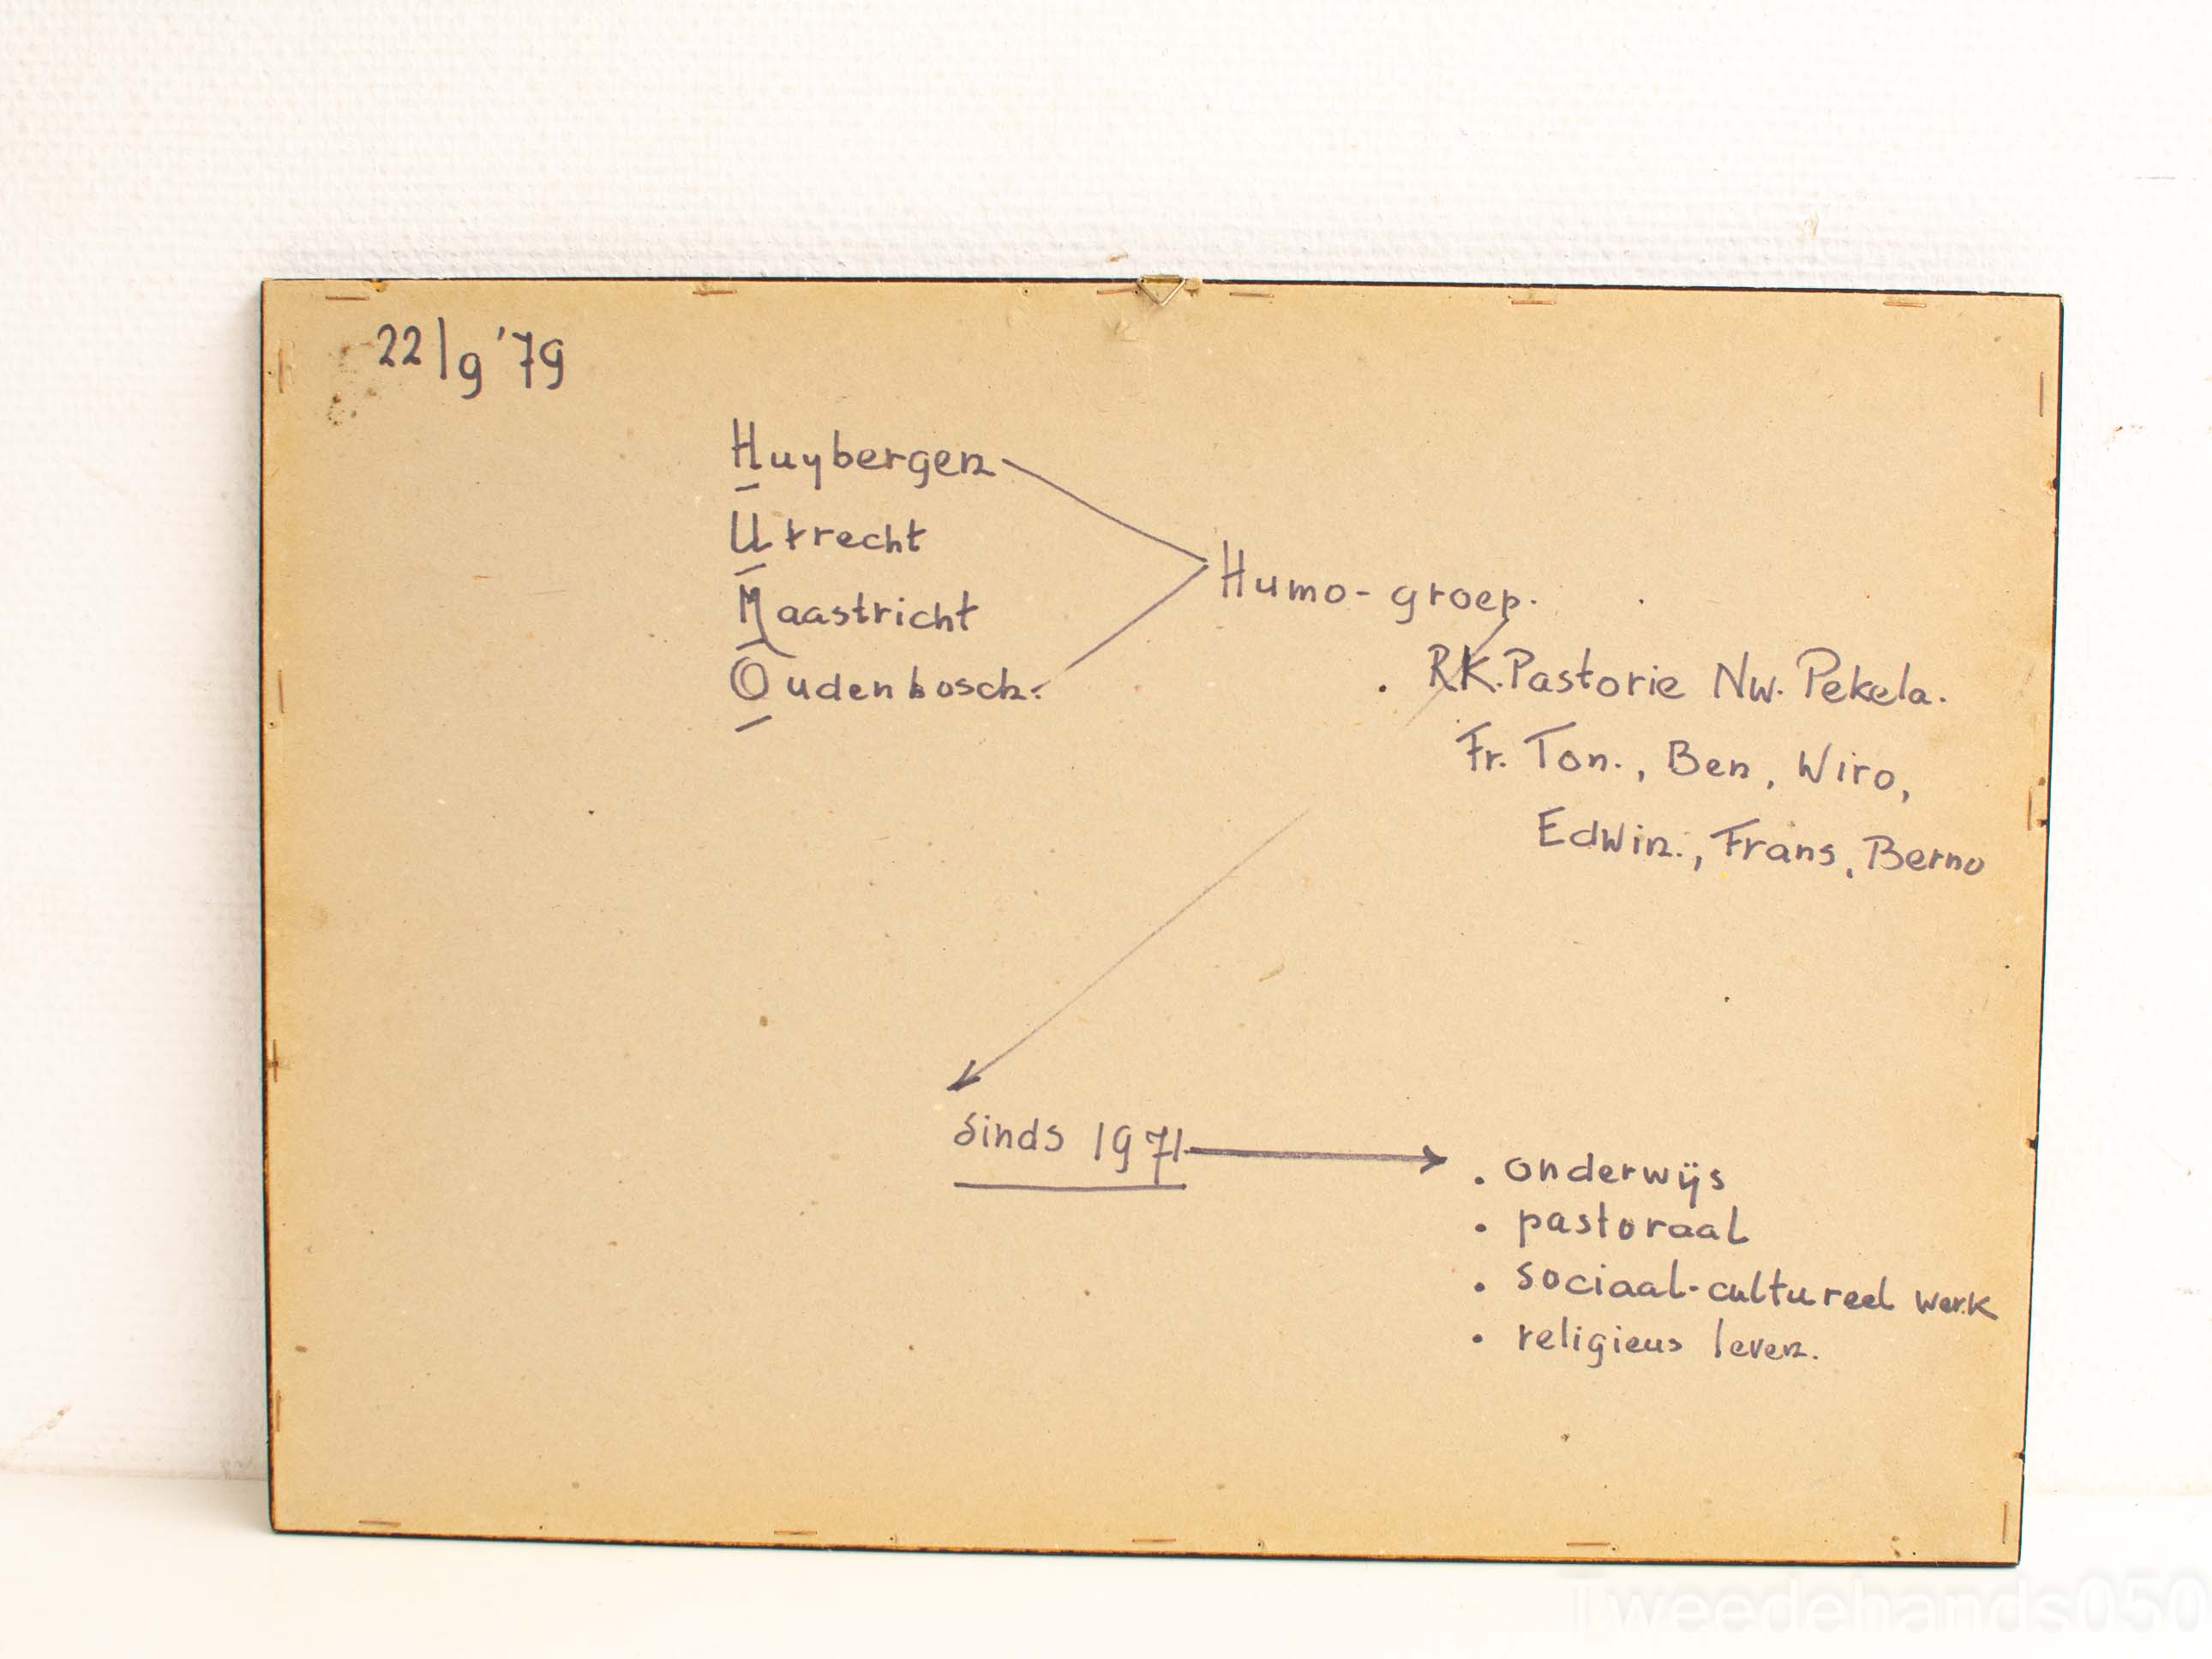 22/9 '79
Huybergen
Utrecht
Maastricht
Oudenbosch.
Humo-groep.
. RK.Pastorie Nw. Pekela.
Fr. Ton., Ben, Wiro,
Edwin., Frans, Berno
sinds 1971
. onderwijs
. pastoraal
. sociaal-cultureel werk
. religieus leven.
Tweedehands050